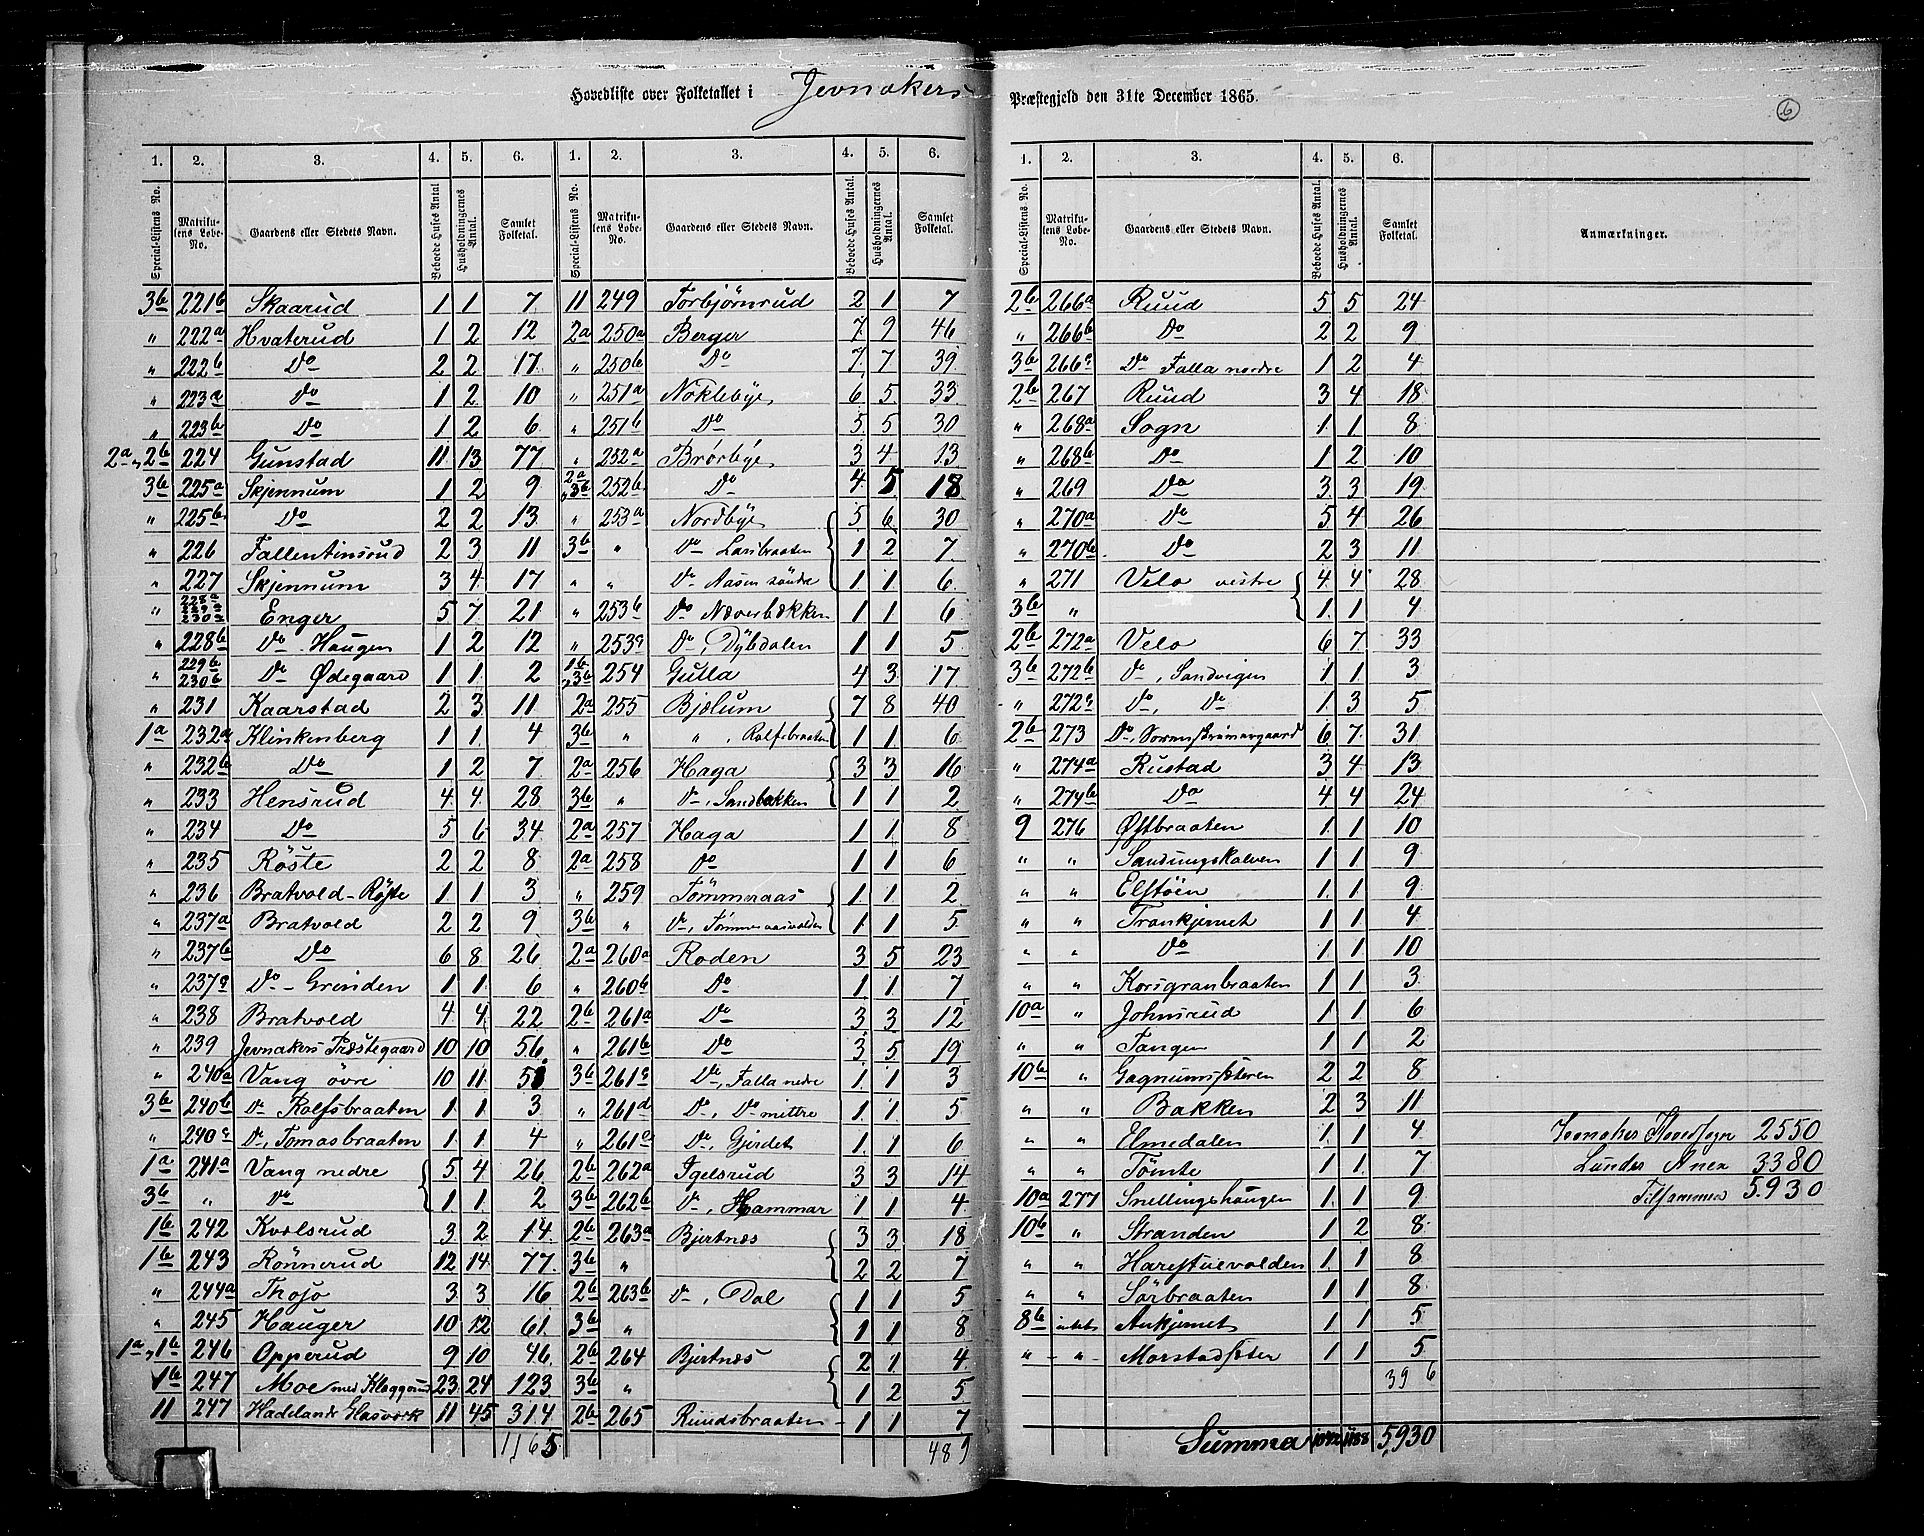 Hovedliste over Folketallet i Jevnakers Præstegjeld den 31te December 1865.
6
1. 2. 3. 4. 5. 6. 1. 2. 3. 4. 5. 6.
Special-Listens No. Matrikulens Løbe-No. Gaardens eller Stedets Navn. Beboede Huses Antal Husholdningernes Antal. Samlet Folketal. Special-Listens No. Matrikulens Løbe-No. Gaardens eller Stedets Navn. Beboede Huses Antal. Husholdningernes Antal. Samlet Folketal.
3b 221b Skaarud 1 1 7 11 249 Torbjørnrud 2 1 7
" 222a Hvaterud 1 2 12 2a 250a Berger 7 9 46
" 222b Do 2 2 17 " 250b Do 7 7 39
" 223a Do 1 2 10 " 251a Noklebye 6 5 33
" 223b Do 1 2 6 " 251b Do 5 5 30
2a, 2b 224 Gunstad 11 13 77 " 252a Brørbye 3 4 13
3b 225a Skjennum 1 2 9 2a, 3b 252b Do 4 5 18
" 225b Do 2 2 13 " 253a Nordbye 5 6 30
" 226 Fallentinsrud 2 3 11 3b " Do Lasibraaten 1 2 7
" 227 Skjennum 3 4 17 " " Do Aasen søndre 1 1 6
" 228a 229a 230a Enger 5 7 21 " 253b Do Næverbækken 1 1 6
" 228b Do Haugen 1 2 12 " 253c Do, Dybdalen 1 1 5
" 229b 230b Do Ødegaard 1 1 2 1b, 3b 254 Gulla 4 3 17
" 231 Kaarstad 2 3 11 2a 255 Bjelum 7 8 40
1a 232a Klinkenberg 1 1 4 3b " " , Rolfsbraaten 1 1 6
" 232b Do 1 2 7 2a 256 Haga 3 3 16
" 233 Hensrud 4 4 28 3b " Do, Sandbakken 1 1 2
" 234 Do 5 6 34 2a 257 Haga 1 1 8
" 235 Røste 2 2 8 2a 258 Do 1 1 6
" 236 Bratvold-Røste 1 1 3 " 259 Tømmnaas 1 1 2
" 237a Bratvold 2 2 9 3b " Do, Tømmeraasvolden 1 1 5
" 237b Do 6 8 26 2a 260a Roden 3 5 23
" 237c Do - Grinden 1 1 6 " 260b Do 1 1 7
" 238 Bratvold 4 4 22 2b 261a Do 3 3 12
" 239 Jevnakers Præstegaard 10 10 56 " 261b Do 3 5 19
" 240a Vang øvre 10 11 3b 261c Do, Falla nedre 1 1 3
3b 240b Do Rolfsbraaten 1 1 3 " 261d Do, Do mittre 1 1 5
" 240c Do, Tomasbraaten 1 1 4 " 261e Do, Gjirdet 1 1 6
1a 241a Vang nedre 5 4 26 2b 262a Igelsrud 3 3 14
3b " Do 1 1 2 3b 262b Do, Hammar 1 1 4
1b 242 Kvolsrud 3 2 14 2b 263a Bjertnæs 3 3 18
1b 243 Rønnerud 12 14 77 3b " 2 2 7
" 244a Thojo 3 3 16 2b 263b Do, Dal 1 1 5
" 245 Hauger 10 12 61 3b " 1 1 8
1a, 1b 246 Opperud 9 10 46 2b 264 Bjertnæs 2 1 4
1b 247 Moe med Kloggerud 23 24 123 3b " 1 2 5
11 247 Hadelands Glasværk 11 45 314 2b 265 Ruudsbraaten 1 1 7
1165 489
1. 2. 3. 4. 5. 6.
Special-Listens No. Matrikulens Løbe-No. Gaardens eller Stedets Navn. Beboede Huses Antal. Husholdningernes Antal. Samlet Folketal. Anmærkninger.
2b 266a Ruud 5 5 24
" 266b Do 2 2 9
3b 266c Do Falla nordre 1 2 4
2b 267 Ruud 3 4 18
" 268a Sogn 1 1 8
" 268b Do 1 2 10
" 269 Do 3 3 19
" 270a Do 5 4 26
" 270b Do 2 3 11
" 271 Velo vestre 4 4 28
3b " 1 1 4
2b 272a Velo 6 7 33
3b 272b Do, Sandvigen 1 1 3
" 272c Do, Do 1 3 5
2b 273 Do, Sorenskrivergaard 6 7 31
" 274a Rustad 3 4 13
" 274b Do 4 4 24
9 276 Østbraaten 1 1 10
" " Sandungskalven 1 1 9
" " Elstøen 1 1 9
" " Trankjernet 1 1 4
" " Do 1 1 10
" " Korsgranbraaten 1 1 3
10a " Johnsrud 1 1 6
" " Tangen 1 1 2
10b " Gagnumsæteren 2 2 8
" " Bakken 2 3 11
" " Elmedalen 1 1 4
" " Tømte 1 1 7
10a 277 Snellingshaugen 1 1 9
10b " Stranden 1 2 8
" " Harestuevolden 1 1 8
" " Sørbraaten 1 1 8
8b Ankjernet 1 1 5
" " Morstadsæter 1 1 5
396
Summa 1042 1188 5930
Jevnaker Hovedsogn 2550
Lunder Anex 3380
Tilsammen 5930